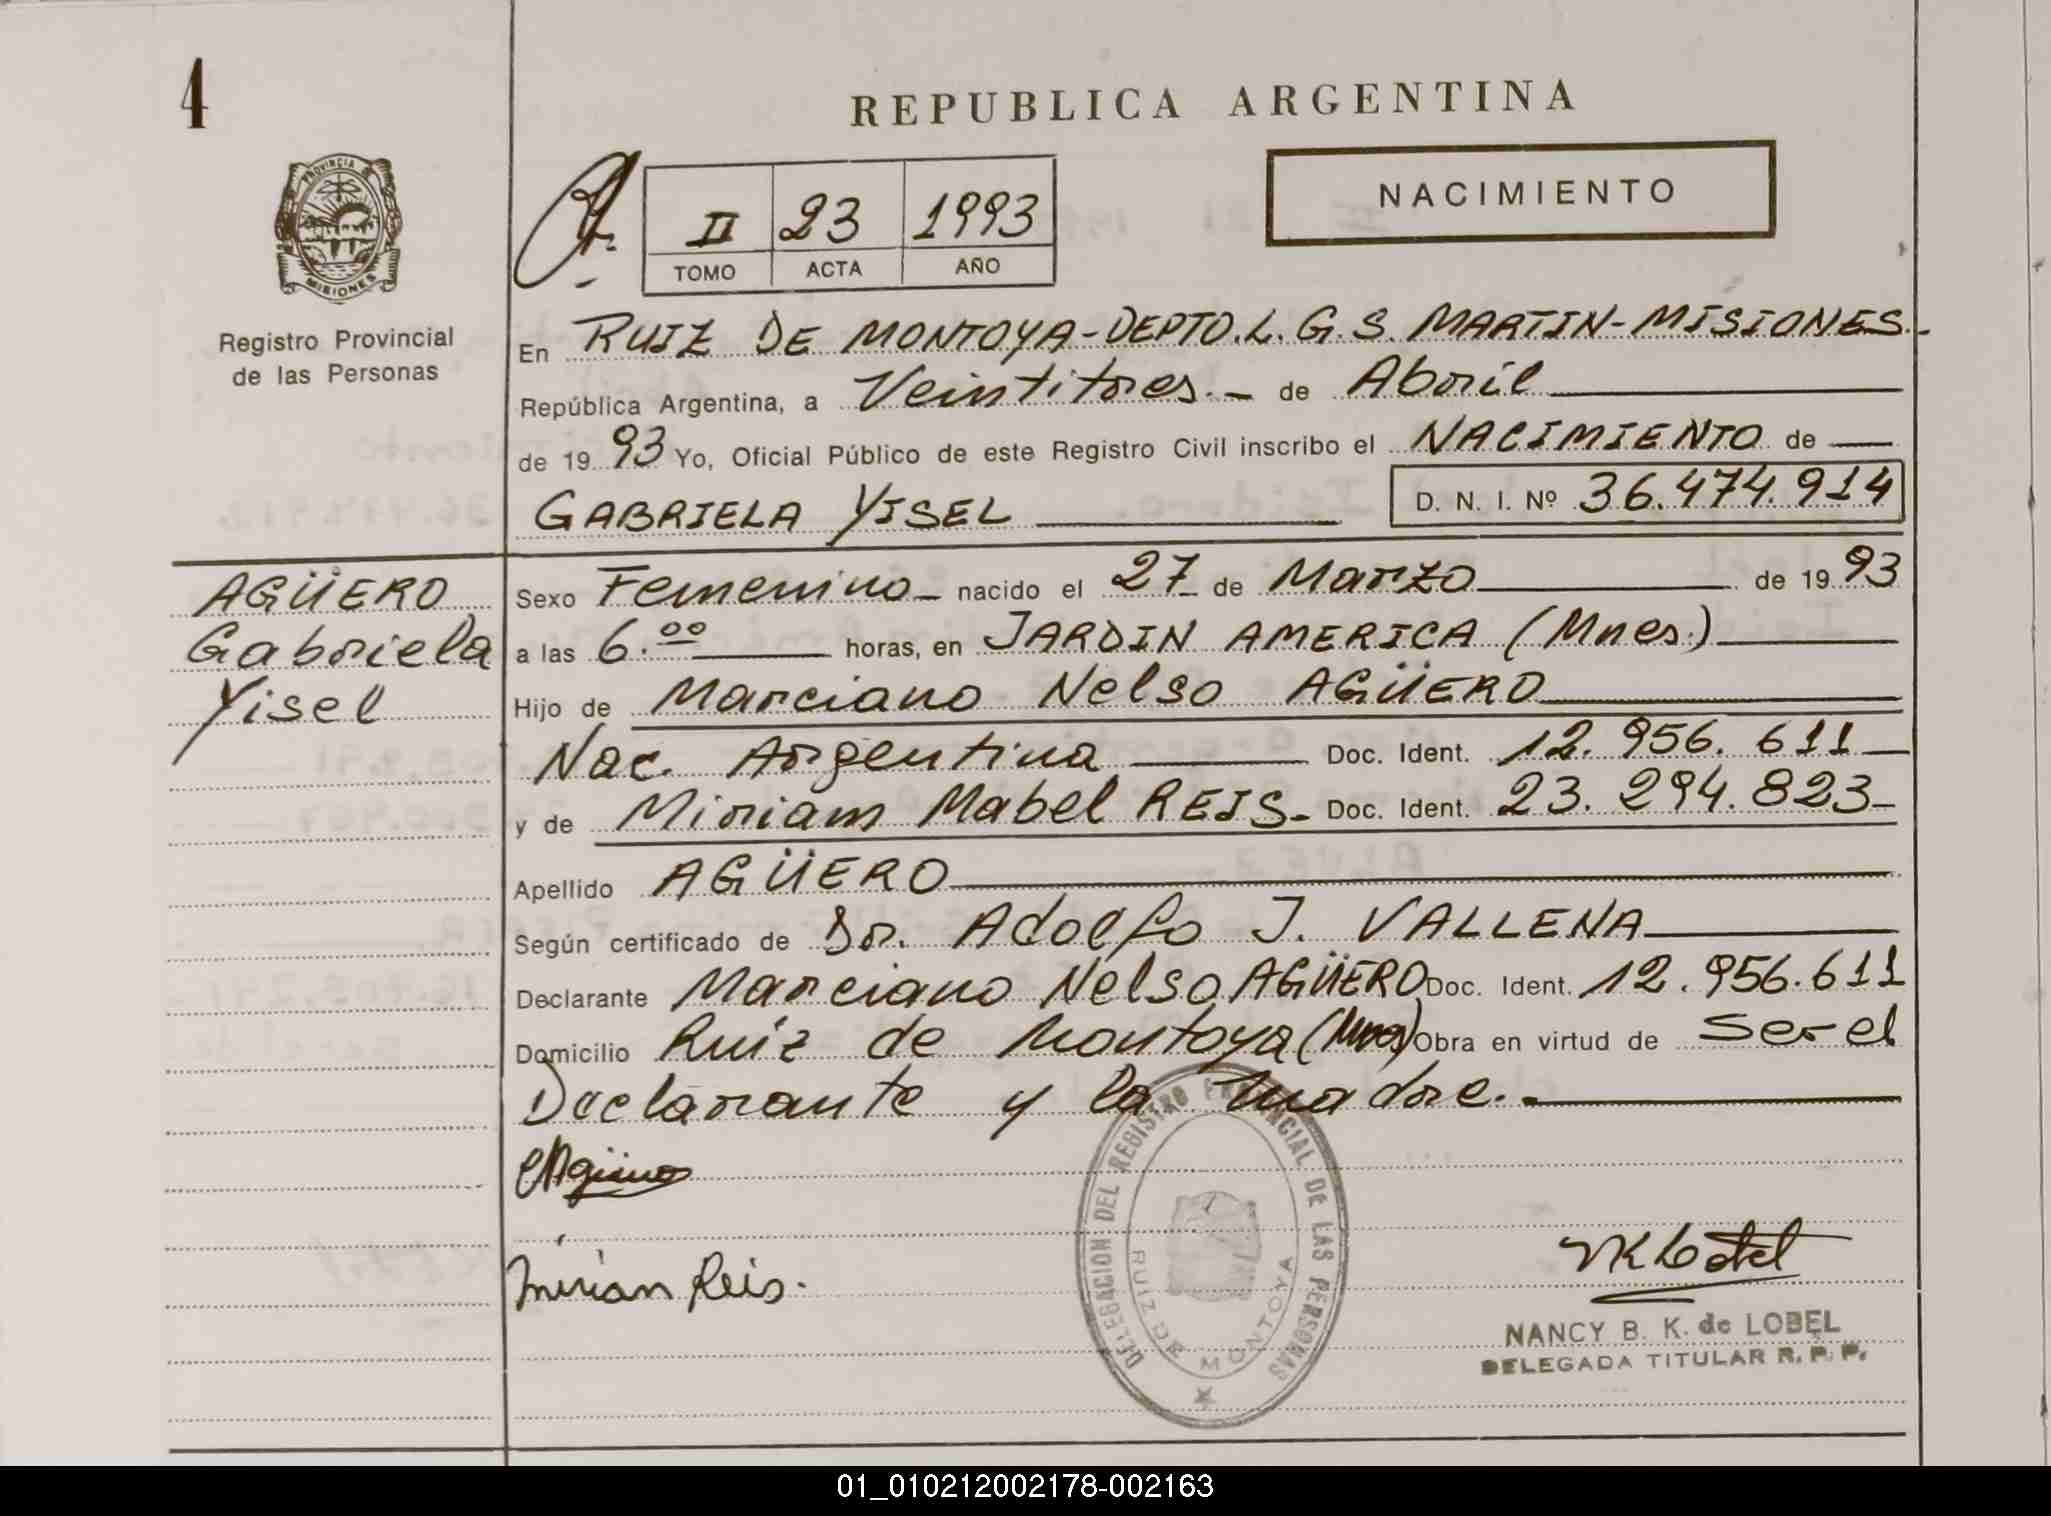 4
REPUBLICA ARGENTINA
PROVINCIA DE
MISIONES
Registro Provincial
de las Personas
II 23 1993
TOMO ACTA AÑO
NACIMIENTO
En RUIZ DE MONTOYA-DEPTO.L.G.S. MARTIN-MISIONES.-
República Argentina, a Veintitres.- de Abril
de 19 93 Yo, Oficial Público de este Registro Civil inscribo el NACIMIENTO de
GABRIELA YISEL D. N. I. Nº 36.474.914
AGÜERO
Gabriela
Yisel
Sexo Femenino- nacido el 27 de Marzo de 19 93
a las 6.00 horas, en JARDIN AMERICA (Mnes.)
Hijo de Marciano Nelso AGÜERO
Nac. Argentina Doc. Ident. 12.956.611
y de Miriam Mabel REIS- Doc. Ident. 23.294.823-
Apellido AGÜERO
Según certificado de Dr. Adolfo J. VALLENA
Declarante Marciano Nelso AGÜERO Doc. Ident. 12.956.611
Domicilio Ruiz de Montoya (Mnes) Obra en virtud de ser el
Declarante y la madre.-
Mirian Reis.
DELEGACION DEL REGISTRO PROVINCIAL DE LAS PERSONAS
RUIZ DE MONTOYA
NANCY B. K. de LOBEL
DELEGADA TITULAR R. P. P.
01_010212002178-002163